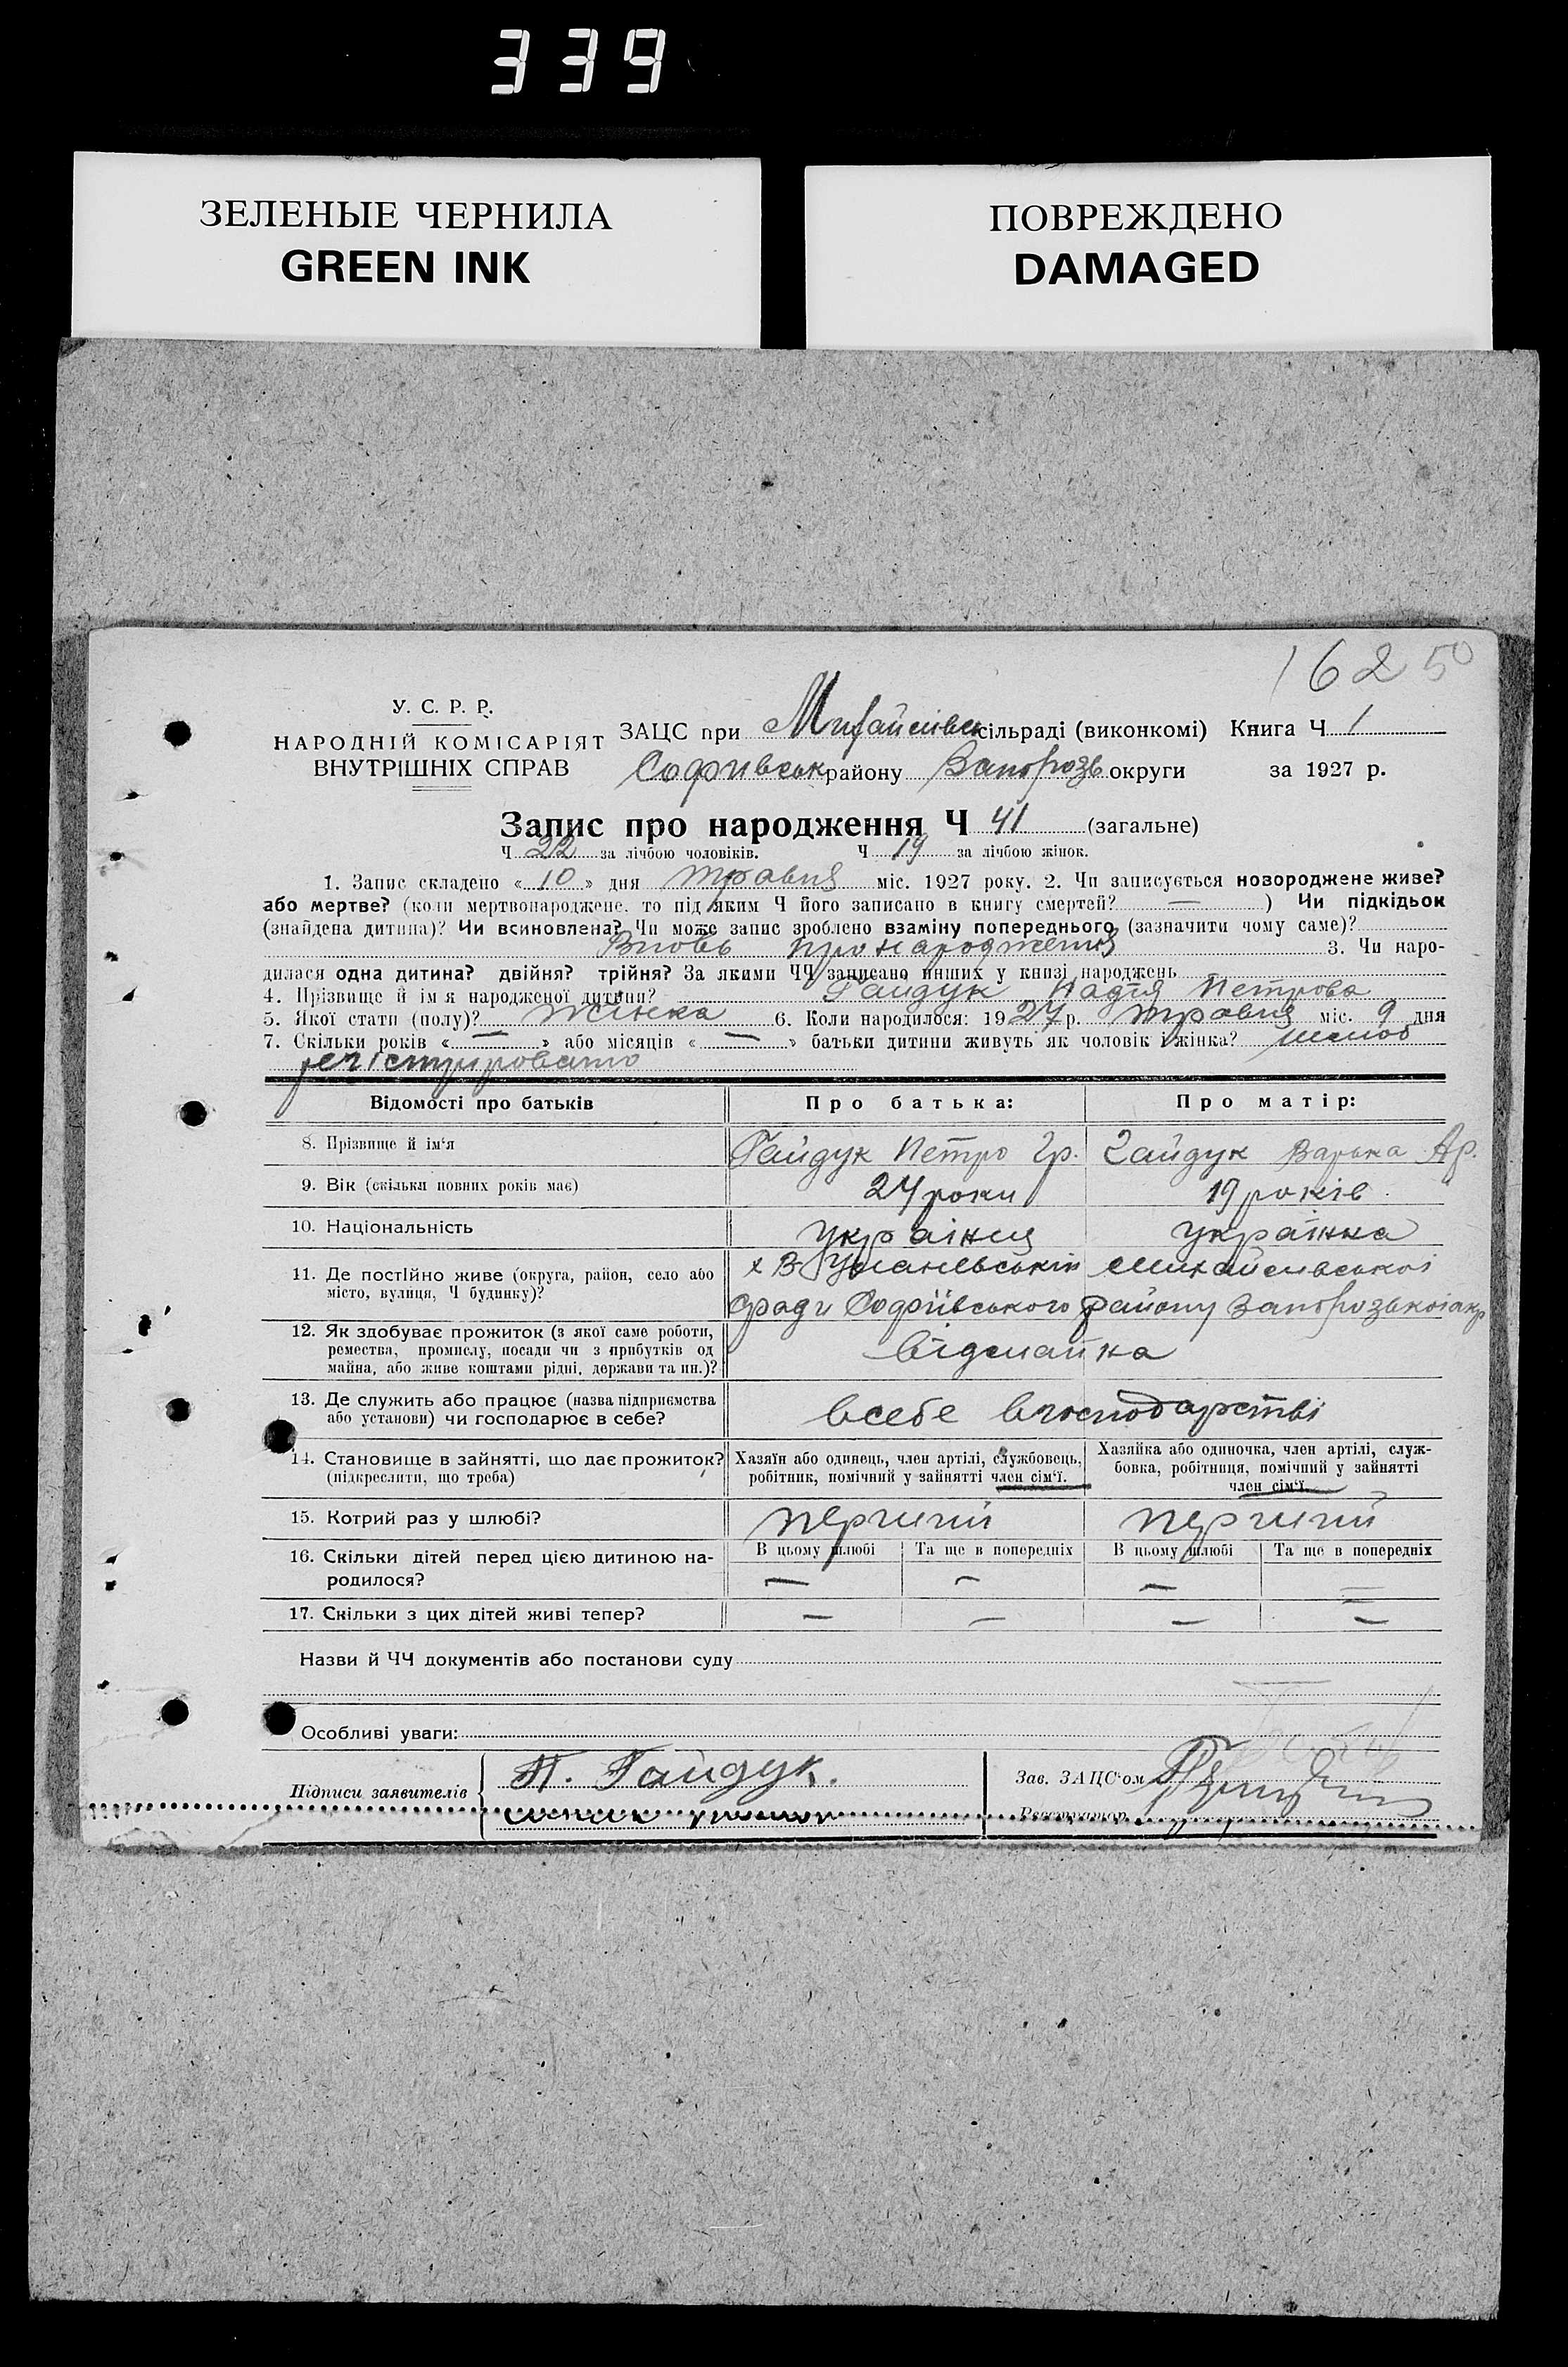 339
ЗЕЛЕНЫЕ ЧЕРНИЛА
GREEN INK
ПОВРЕЖДЕНО
DAMAGED
162 50
У. С. Р. Р.
НАРОДНІЙ КОМІСАРІЯТ
ВНУТРІШНІХ СПРАВ
ЗАЦС при Михайлівск сільраді (виконкомі) Книга Ч 1
Софиївськ району Запорозь округи за 1927 р.
Запис про народження Ч 41 (загальне)
Ч 22 за лічбою чоловіків. Ч 19 за лічбою жінок.
1. Запис складено « 10 » дня травня міс. 1927 року. 2. Чи записується новороджене живе?
або мертве? (коли мертвонароджене, то під яким Ч його записано в книгу смертей? — ) Чи підкідьок
(знайдена дитина)? Чи всиновлена? Чи може запис зроблено взаміну попереднього (зазначити чому саме)?
Вновь про народження 3. Чи наро-
дилася одна дитина? двійня? трійня? За якими ЧЧ записано инших у книзі народжень
4. Прізвище й ім'я народженої дитини? Гайдук Надія Петрова
5. Якої стати (полу)? жінка 6. Коли народилося: 1927 р. травня міс. 9 дня
7. Скільки років « — » або місяців « — » батьки дитини живуть як чоловік і жінка? шлюб
регістрировано
Відомості про батьків Про батька: Про матір:
8. Прізвище й ім'я Гайдук Петро Гр. Гайдук Варька Ар.
9. Вік (скільки повних років має) 24 роки 19 років
10. Національність українц українка
11. Де постійно живе (округа, район, село або
місто, вулиця, Ч будинку)?
х В Уманевський Михайливської
сради Софіївського району Запорозькоі окр
12. Як здобуває прожиток (з якої саме роботи,
ремества, промислу, посади чи з прибутків од
майна, або живе коштами рідні, держави та ин.)?
від
13. Де служить або працює (назва підприємства
або установи) чи господарює в себе?
всебе вгосподарстві
14. Становище в зайнятті, що дає прожиток?
(підкреслити, що треба)
Хазяїн або одинець, член артілі, службовець,
робітник, помічний у зайнятті член сім'ї.
Хазяйка або одиночка, член артілі, служ-
бовка, робітниця, помічний у зайнятті
член сім'ї.
15. Котрий раз у шлюбі? перший перший
16. Скільки дітей перед цією дитиною на-
родилося?
В цьому шлюбі Та ще в попередніх В цьому шлюбі Та ще в попередніх
— — — —
17. Скільки з цих дітей живі тепер? — — — —
Назви й ЧЧ документів або постанови суду
Особливі уваги:
Підписи заявителів П. Гайдук. Зав. ЗАЦС'ом
Реєстратор